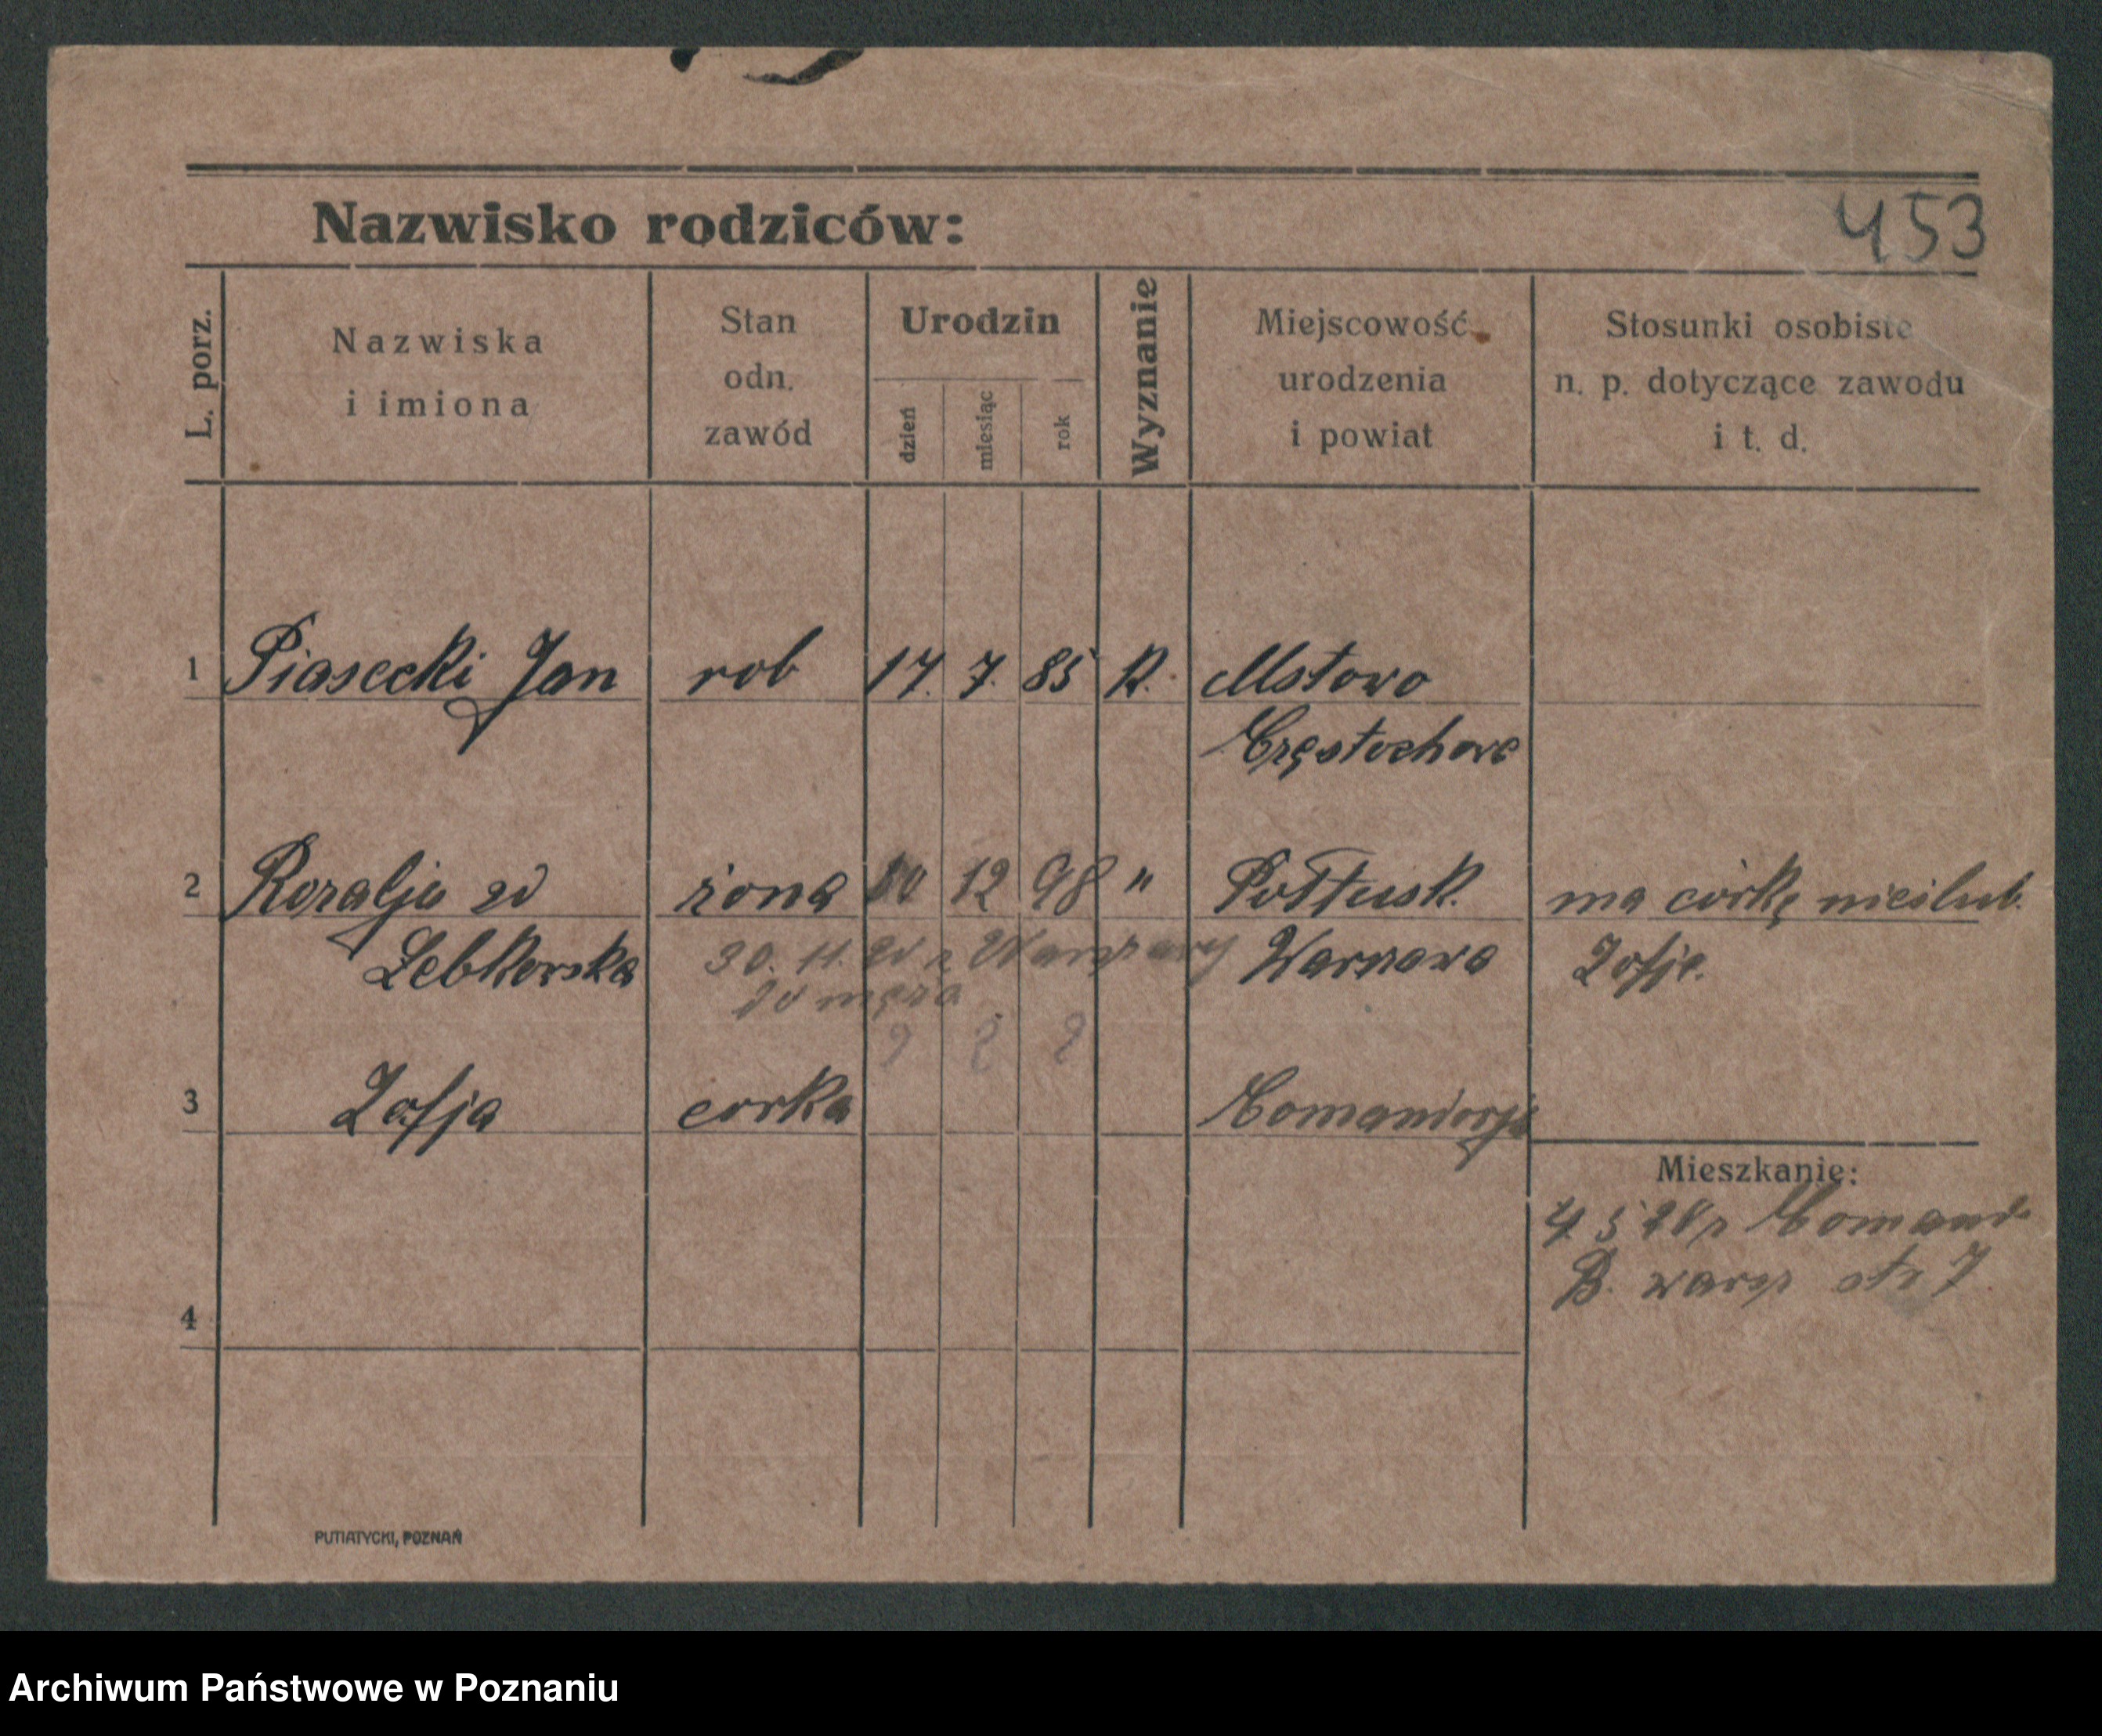 Nazwisko rodziców:
453
L. porz.
Nazwiska
i imiona
Stan
odn.
zawód
Urodzin
dzień
miesiąc
rok
Wyznanie
Miejscowość
urodzenia
i powiat
Stosunki osobiste
n. p. dotyczące zawodu
i t. d.
1 Piasecki Jan rob 17. 7. 85 R. Mstowo
Częstochowa
2 Rozalja zd żona 12 98 " Połtusk. ma córkę nieślub.
Łebkowska 30. 11. z Warszawy Warszawa Zofje.
do męża
? ? ?
3 Zofja corka Comandorja
Mieszkanie:
4 5 Comand.
B. warsz str 7
4
PUTIATYCKI, POZNAŃ
Archiwum Państwowe w Poznaniu